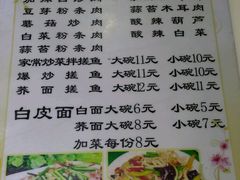 豆芽粉条肉 蒜苔木耳肉
蘑菇炒肉 酸辣葫芦
白菜粉条肉 酸辣白菜
蒜苔粉条肉
家常炒菜拌搓鱼 大碗11元 小碗10元
爆炒搓鱼 大碗11元 小碗10元
荞面搓鱼 大碗12元 小碗11元
白皮面 白面 大碗6元 小碗5元
荞面 大碗8元 小碗7元
加菜每份8元